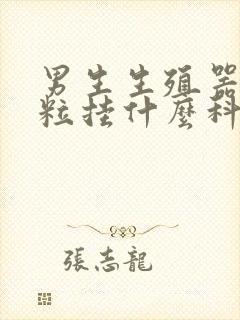 男生生殖器
粒挂什麼科
張志龍